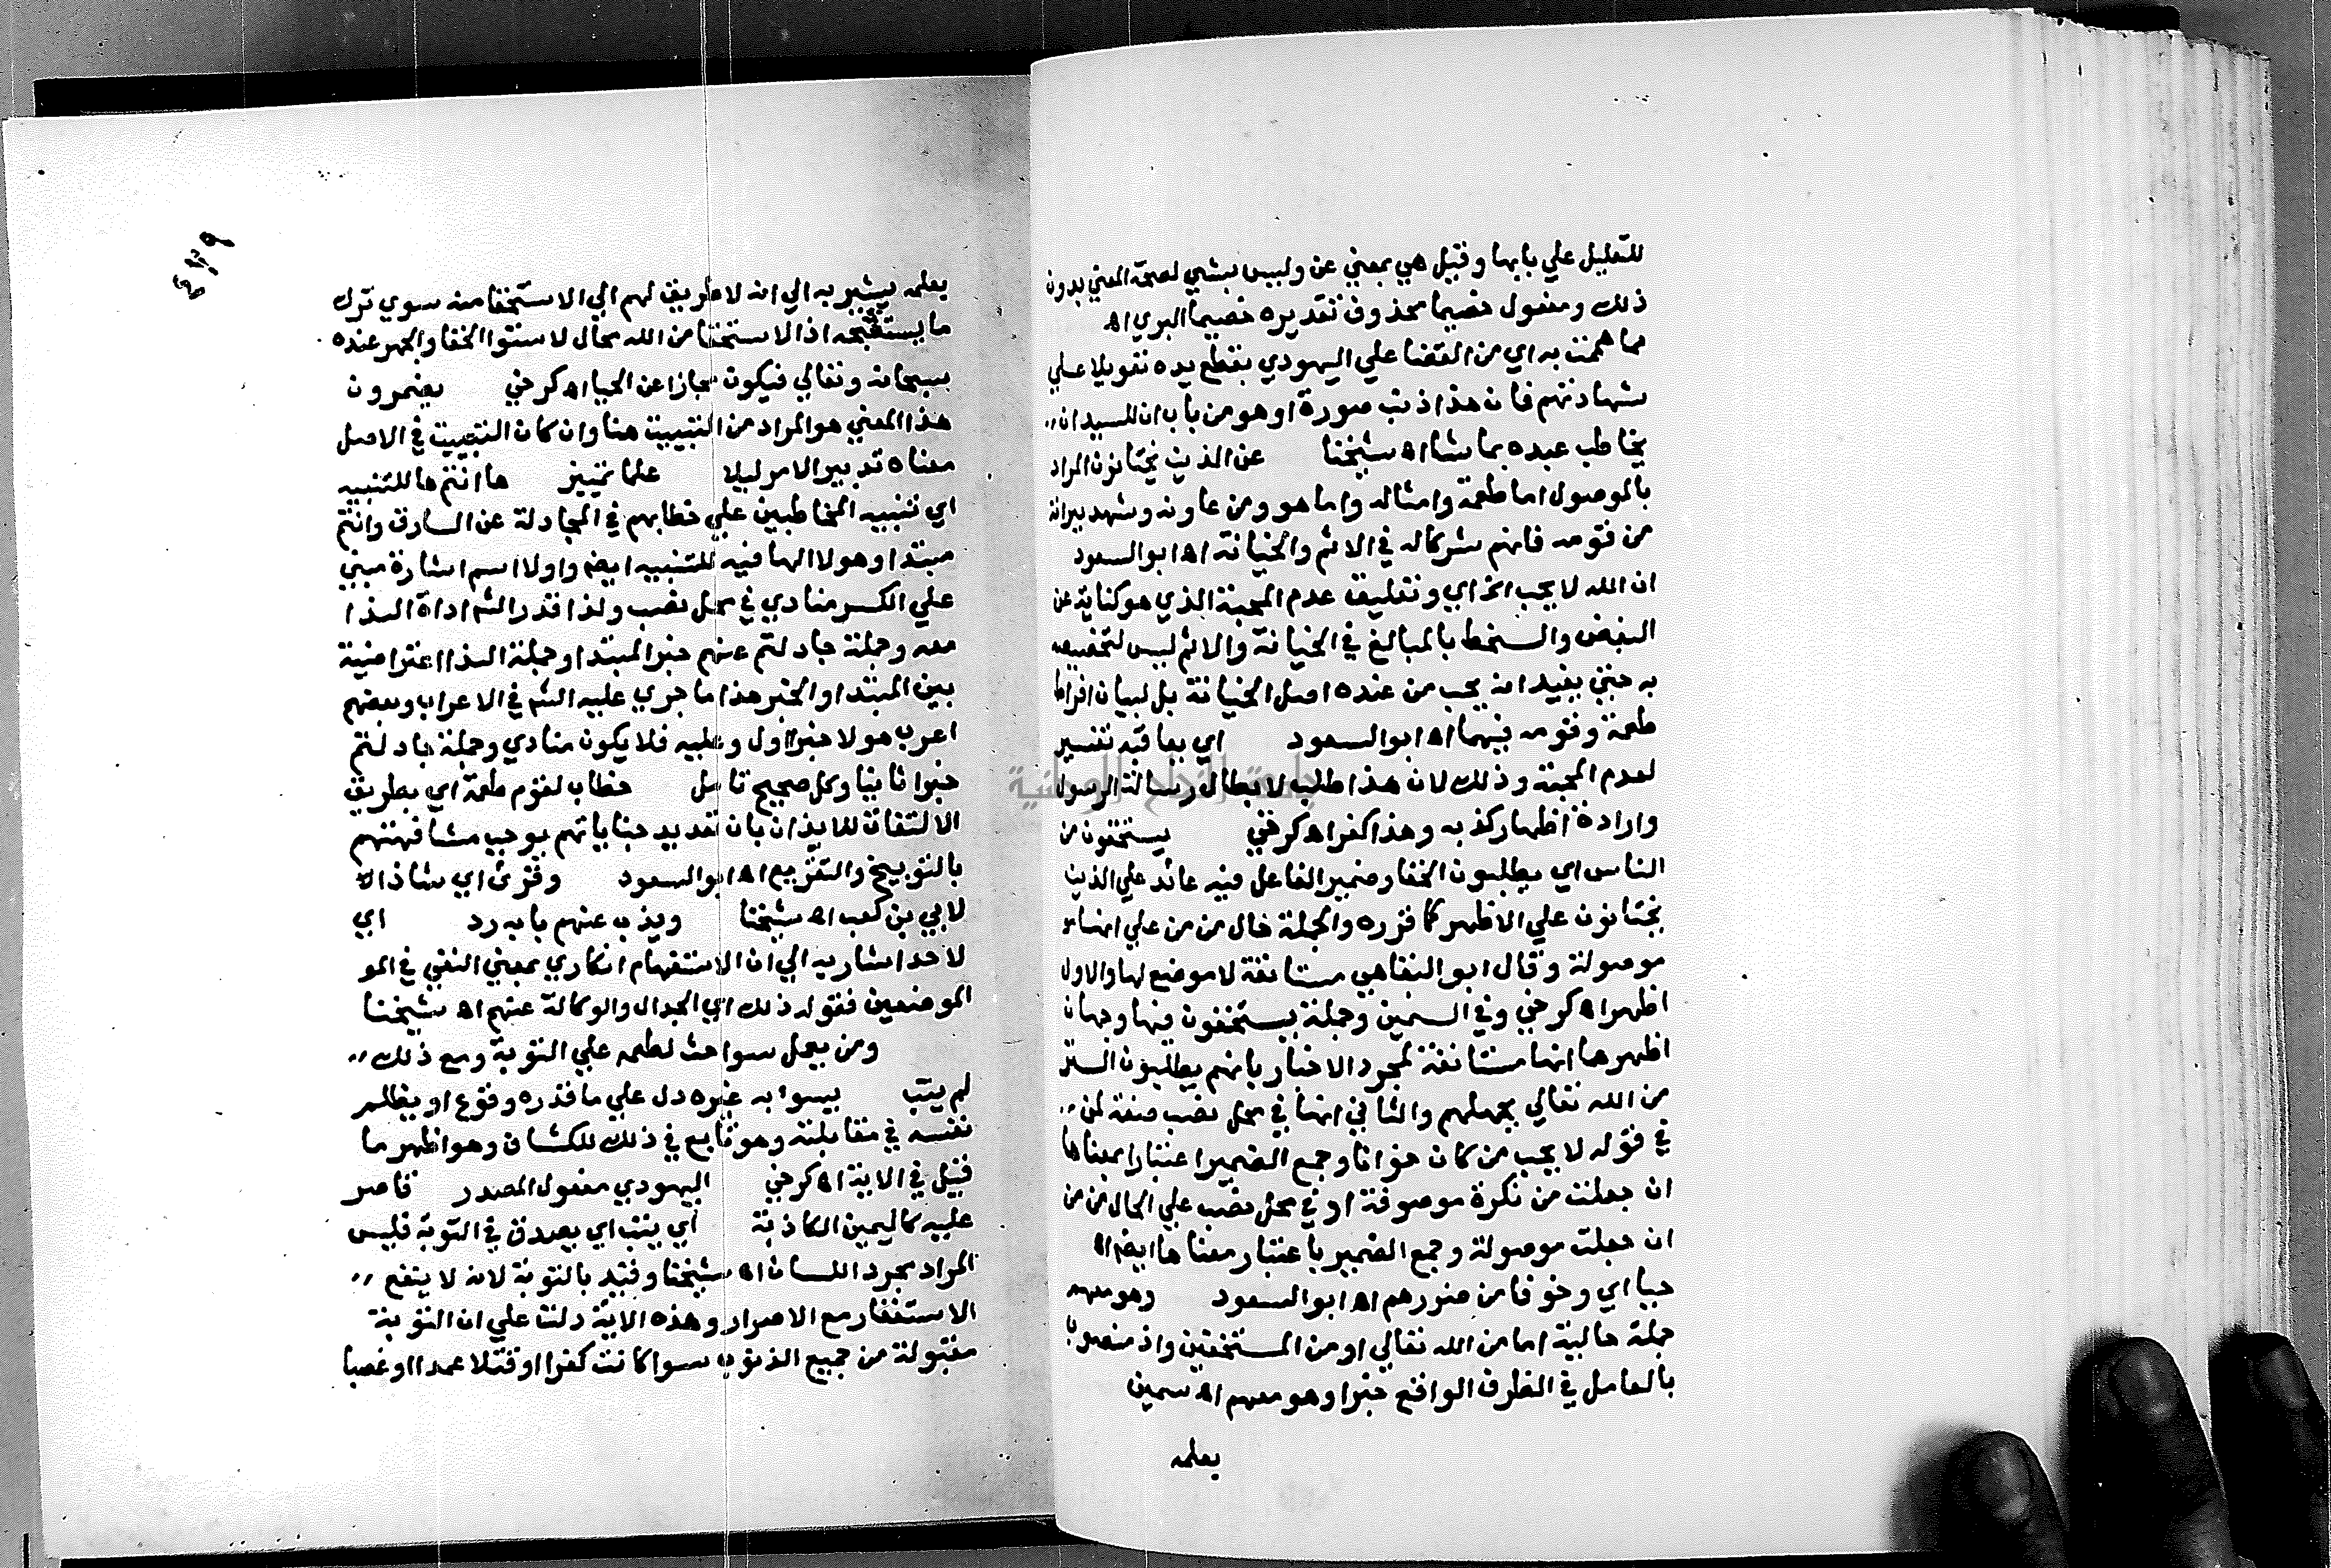 للتعليل علي بابها وقيل هي بمعني عن وليس بشي لصحة المعني بدون
ذلك ومفعول خصيما محذوف تقديره خصيما البري اه
مما هممت به اي من القضا علي اليهودي بقطع يده تعويلا علي
شهادتهم فان هذا ذنب صورة او هو من باب ان للسيد ان
يخاطب عبده بما شا اه شيخنا عن الذين يختانون المراد
بالموصول اما طعمة وامثاله واما هو ومن عاونه وشهد ببراته
من قومه فانهم شركا له في الاثم والخيانة اه ابو السعود
ان الله لا يحب الخ اي وتعليق عدم المحبة الذي هو كناية عن
البغض والسخط بالمبالغ في الخيانة والاثم ليس لتخصيصه
به حتي يفيد انه يحب من عنده اصل الخيانة بل لبيان افراط
طعمة وقومه فيهما اه ابو السعود اي يعاقبه تفسير
لعدم المحبة وذلك لان هذا طلب لابطال رسالة الرسول
وارادة اظهار كذبه وهذا كفر اه كرخي يستخفون من
الناس اي يطلبون الخفا وضمير الفاعل فيه عائد علي الذين
يختانون علي الاظهر كما قرره والجملة حال من من علي انها
موصولة وقال ابو البقا هي مستانفة لا موضع لها والاول
اظهر اه كرخي وفي السمين وجملة يستخفون فيها وجهان
اظهرها انها مستانفة لمجرد الاخبار بانهم يطلبون الستر
من الله تعالي بجهلهم والثاني انها في محل نصب صفة لمن
في قوله لا يحب من كان خوانا وجمع الضمير اعتبارا بمعناها
ان جعلت من نكرة موصوفة او في محل نصب علي الحال من من
ان جعلت موصولة وجمع الضمير باعتبار معناها ايضا اه
حيا اي وخوفا من ضررهم اه ابو السعود وهو معهم
جملة حالية اما من الله تعالي او من المستخفين واذ منصوب
بالعامل في الظرف الواقع خبرا وهو معهم اه سمين
يعلمه
٤٣٩
يعلمه يشير به الي انه لا طريق لهم الي الاستخفا منه سوي ترك
ما يستقبحه اذ الاستخفا من الله محال لاستوا الخفا والجهر عنده
سبحانه وتعالي فيكون مجازا عن الحيا اه كرخي يضمرون
هذا المعني هو المراد من التبييت هنا وان كان التبييت في الاصل
معناه تدبير الامر ليلا علما تمييز ها انتم ها للتنبيه
اي تنبيه المخاطبين علي خطابهم في المجادلة عن السارق وانتم
مبتدا وهولا الها فيه للتنبيه ايضا واولا اسم اشارة مبني
علي الكسر منادي في محل نصب ولذا قدر الشم اداة الندا
معه وجملة جادلتم عنهم خبر المبتدا وجملة الندا اعتراضية
بين المبتدا والخبر هذا ما جري عليه الشم في الاعراب وبعضهم
اعرب هولا خبرا اول وعليه فلا يكون منادي وجملة جادلتم
خبرا ثانيا وكل صحيح تامل خطاب لقوم طعمة اي بطريق
الالتفات للايذان بان تعديد جناياتهم يوجب مشافهتهم
بالتوبيخ والتقريع اه ابو السعود وقرئ اي شاذا
لابي بن كعب اه شيخنا ويذب عنهم بابه رد اي
لا حد اشار به الي ان الاستفهام انكاري بمعني النفي في المو
الموضعين فقوله ذلك اي الجدال والوكالة عنهم اه شيخنا
ومن يعمل سوا حث لطعمه علي التوبة ومع ذلك
لم يتب يسوا به غيره دل علي ما قدره وقوع او يظلم
نفسه في مقابلته وهو تابع في ذلك للكشاف وهو اظهر ما
قيل في الاية اه كرخي اليهودي مفعول المصدر قاصر
عليه كاليمين الكاذبة اي يتب اي يصدق في التوبة فليس
المراد مجرد اللسان اه شيخنا وقيد بالتوبة لانه لا ينفع
الاستغفار مع الاصرار وهذه الاية دلت علي ان التوبة
مقبولة من جميع الذنوب سوا كانت كفرا او قتلا عمدا او غصبا
جامعة النجاح الوطنية